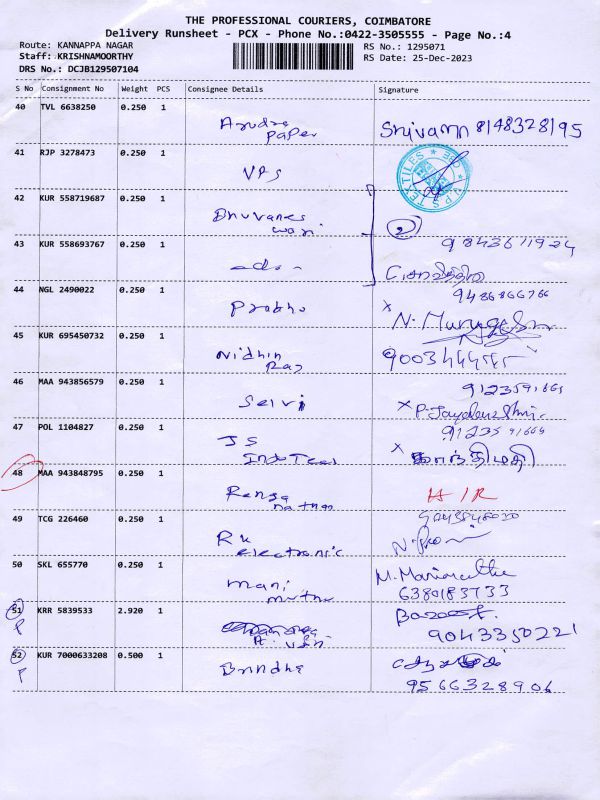 THE PROFESSIONAL COURIERS, COIMBATORE
Delivery Runsheet - PCX - Phone No.:0422-3505555 - Page No.:4
Route: KANNAPPA NAGAR RS No.: 1295071
Staff: KRISHNAMOORTHY RS Date: 25-Dec-2023
DRS No.: DCJB129507104
S No Consignment No Weight PCS Consignee Details Signature
40 TVL 6638250 0.250 1
Paper Shivamn 8148328195
41 RJP 3278473 0.250 1
VPS VPS TEXTILES
42 KUR 558719687 0.250 1
Bhuvanes
wari 2
43 KUR 558693767 0.250 1
44 NGL 2490022 0.250 1
Prabhu x N. Murugesan
45 KUR 695450732 0.250 1
Nidhin
Raj
46 MAA 943856579 0.250 1
Selvi x
47 POL 1104827 0.250 1
JS x
48 MAA 943848795 0.250 1
Renga
nathan H/R
49 TCG 226460 0.250 1
RK
electronic
50 SKL 655770 0.250 1
Mani
muthu 6380183733
51 KRR 5839533 2.920 1
P 9043350221
52 KUR 7000633208 0.500 1
P Brindha
9566328906